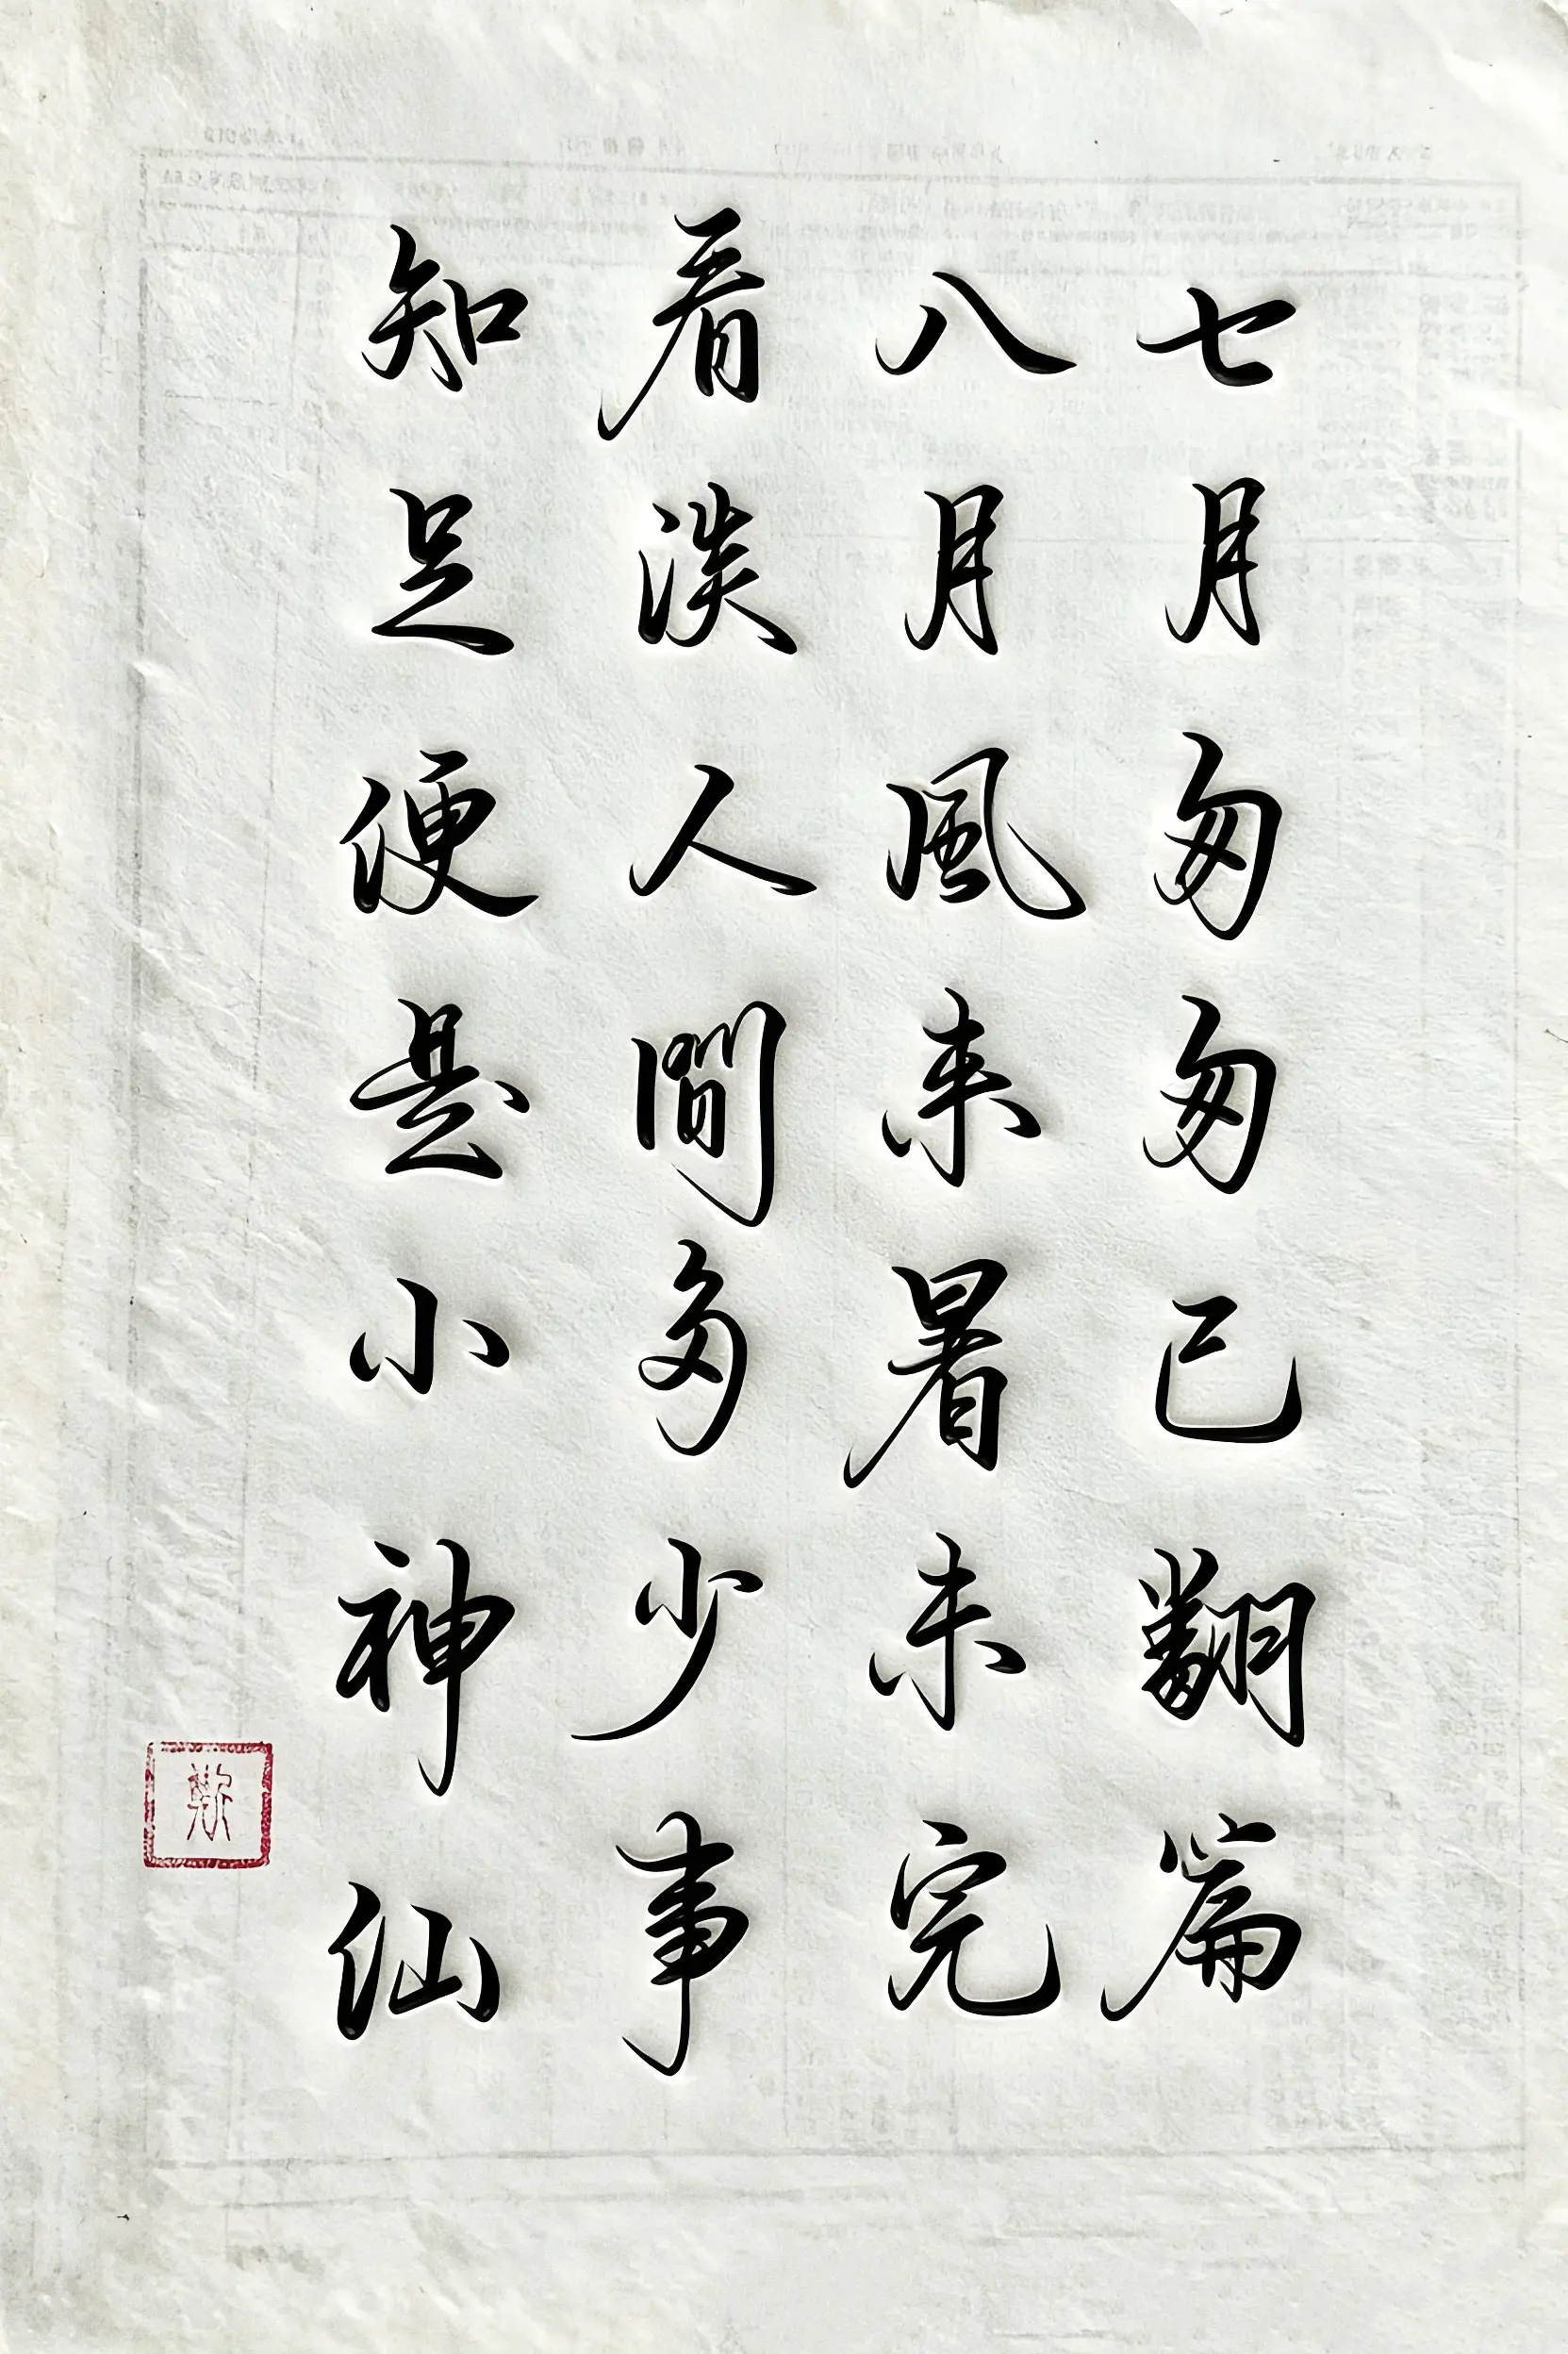 七月匆匆已翻篇
八月風来暑未完
看淡人間多少事
知足便是小神仙